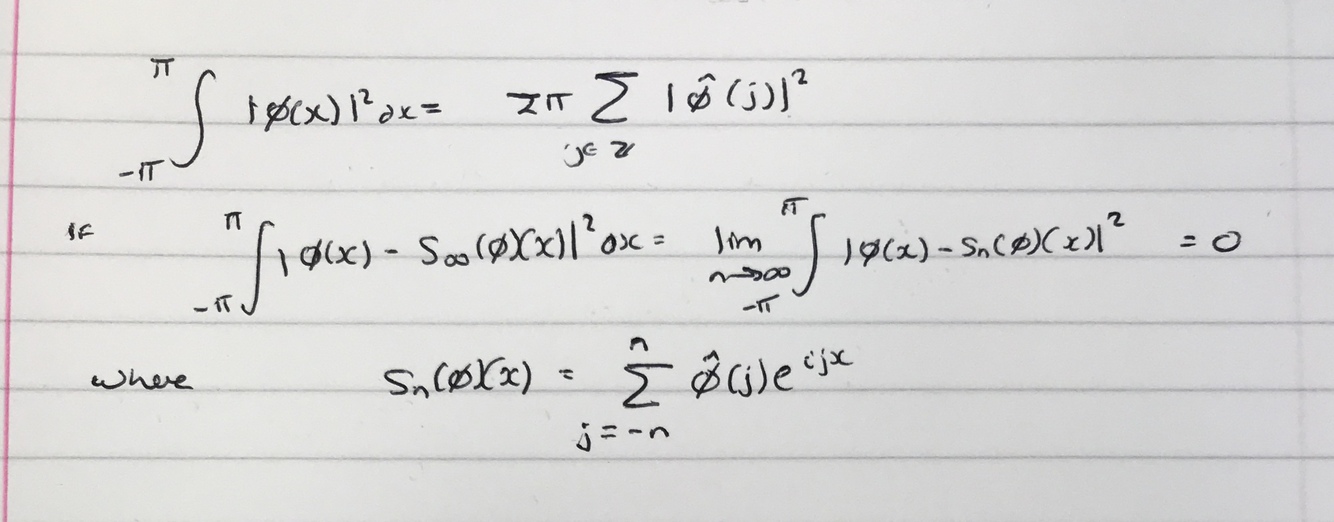 ∫_{-π}^{π} |φ(x)|² dx = 2π ∑_{j∈ℤ} |φ̂(j)|²
If ∫_{-π}^{π} |φ(x) - S_∞(φ)(x)|² dx = lim_{n→∞} ∫_{-π}^{π} |φ(x) - S_n(φ)(x)|² = 0
where S_n(φ)(x) = ∑_{j=-n}^{n} φ̂(j)e^{ijx}